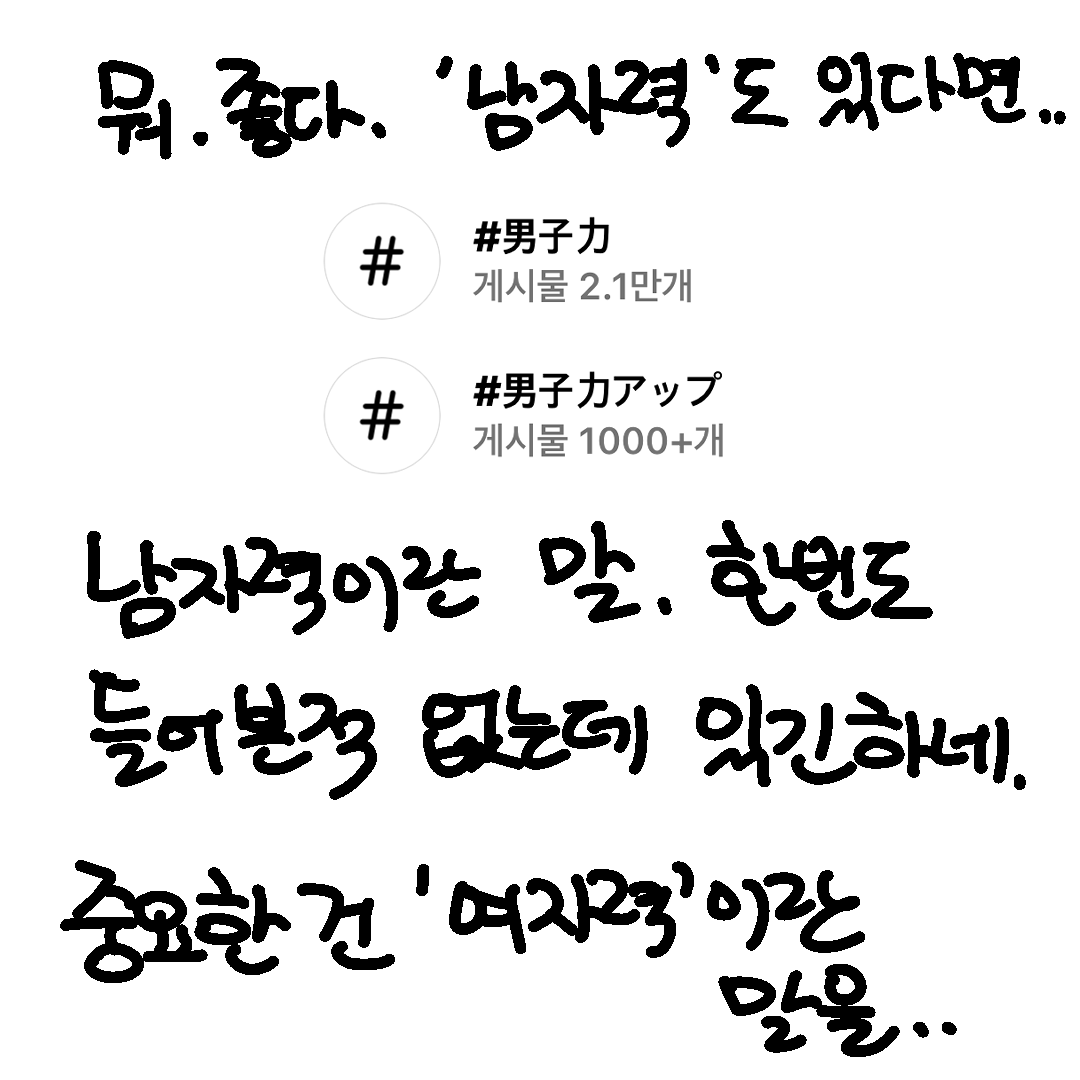 뭐. 좋다. '남자력'도 있다면..
# #男子力
게시물 2.1만개
# #男子力アップ
게시물 1000+개
남자력이란 말. 한번도
들어본적 없는데 있긴하네.
중요한 건 '여자력'이란
말을..